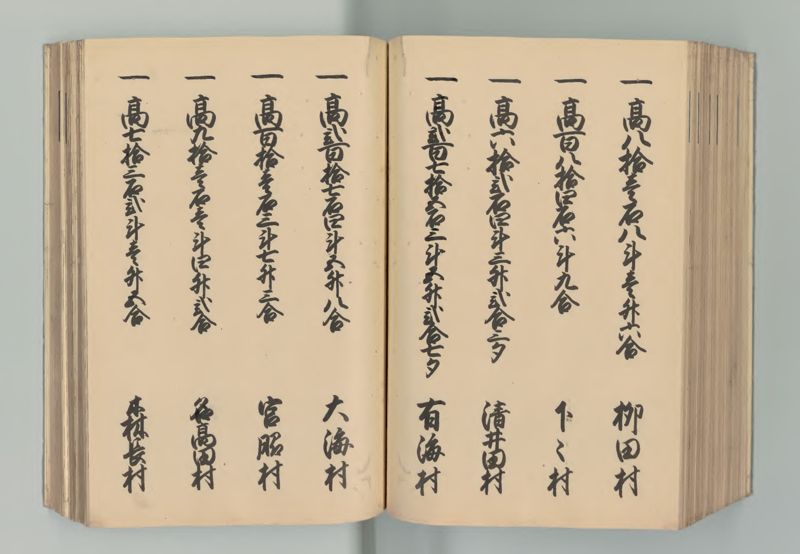 一 高八拾壱石八斗壱升六合 柳田村
一 高百八拾四石六斗九合 下々村
一 高六拾弐石四斗三升弐合三夕 清井田村
一 高弐百七拾五石三斗五升弐合七夕 有海村
一 高弐百拾七石四斗五升八合 大海村
一 高百拾壱石三斗七升三合 宮脇村
一 高九拾壱石壱斗四升弐合 名高田村
一 高七拾三石弐斗壱升五合 森長村